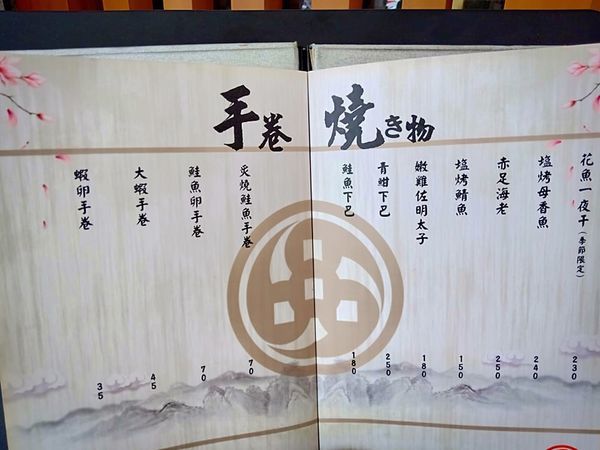 燒き物
花魚一夜干(季節限定)
230
塩烤母香魚
240
赤足海老
250
塩烤鯖魚
150
嫩雞佐明太子
180
青魽下巴
250
鮭魚下巴
180
手卷
炙燒鮭魚手卷
70
鮭魚卵手卷
70
大蝦手卷
45
蝦卵手卷
35